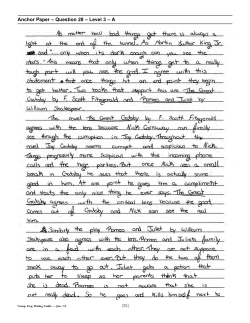 Anchor Paper – Question 28 – Level 3 – A
No matter how bad things get there is always a
light at the end of the tunnel. As Martin Luther King Jr.
said " only when its dark enough can you see the
stars." This means that only when things get to a really
tough part will you see the good. I agree with this
statement that once things hit an end point they begin
to get better. Two books that support this are The Great
Gatsby by F. Scott Fitzgerald and Romeo and Juliet by
William Shakespeare.
The novel The Great Gatsby by F. Scott Fitzgerald
agrees with the lens because Nick Carraway can finally
see through the corruption in The Gatsby. Throughout the
novel Jay Gatsby seems corrupt and suspicious to Nick.
Things progressively more suspicious with the incoming phone
calls and the huge parties. But once Nick sees a small
breath in Gatsby he sees that there is actually some
good in him. At one point he gives him a complement
and states the only nice thing he ever says. The Great
Gatsby agrees with the critical lens because the good
comes out of Gatsby and Nick can see the real
him.
Similarly the play Romeo and Juliet by William
Shakespeare also agrees with the lens. Romeo and Juliets family
are in a feud with each other. They are not allowed
to see each other ever. But they do the two of them
sneak away to go out. Juliet gets a potion that
puts her to sleep so her parents think that
she is dead. Romeo is not aware that she is
not really dead. So he goes and kills himself next to
[32]